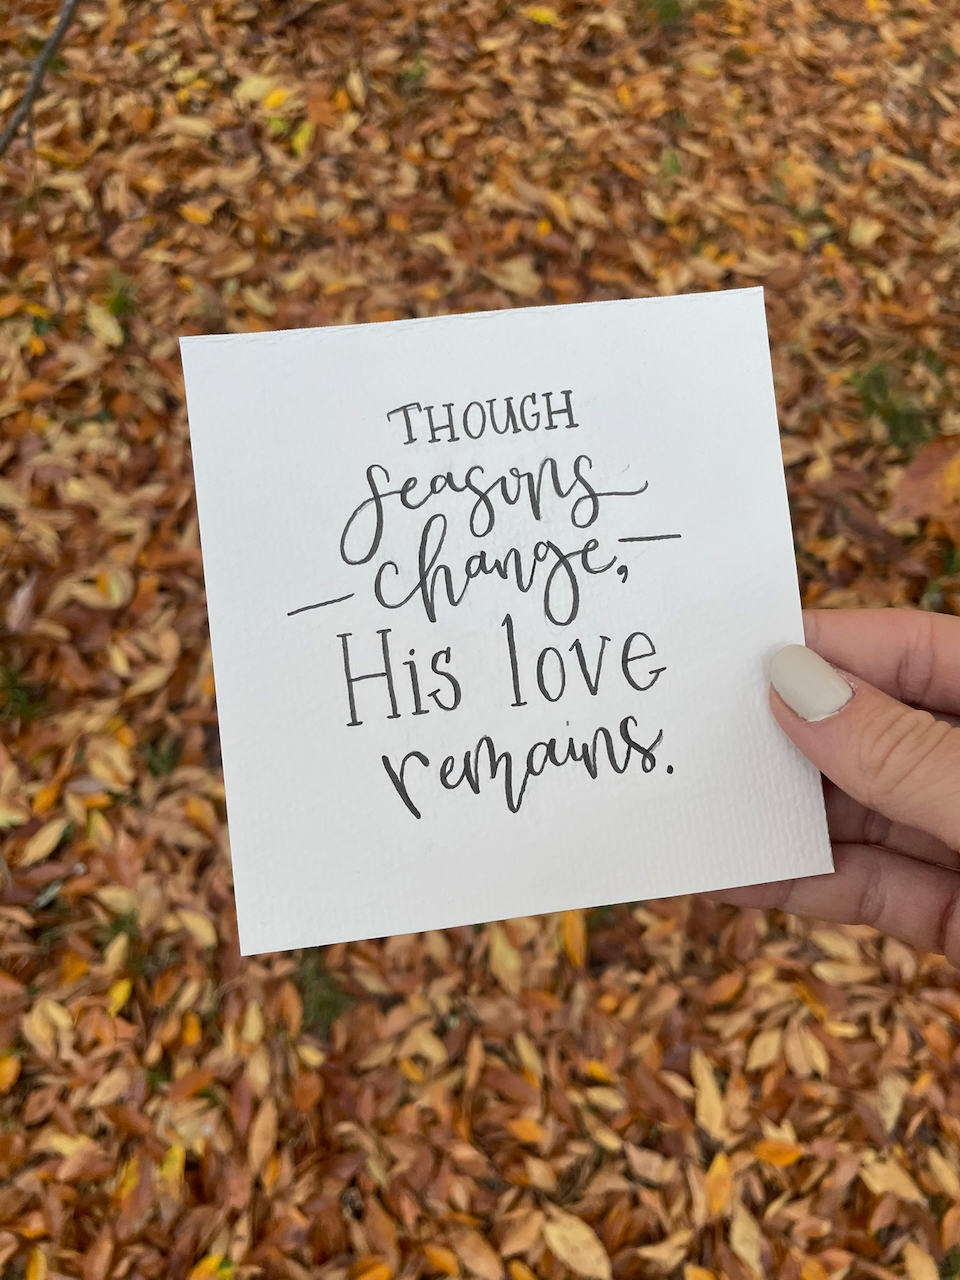 THOUGH
seasons
change,
His love
remains.